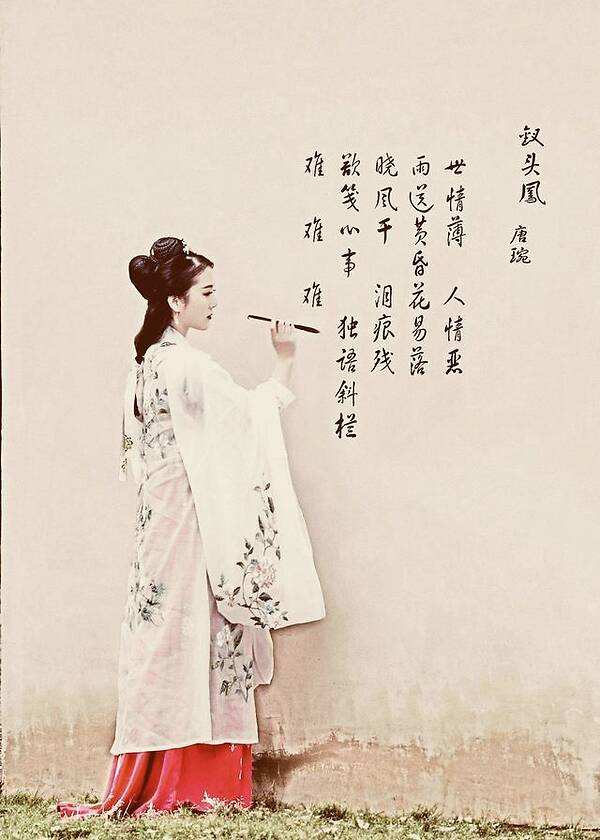 钗头凤
唐琬
世情薄 人情恶
雨送黄昏花易落
晓风干 泪痕残
欲笺心事 独语斜栏
难 难 难